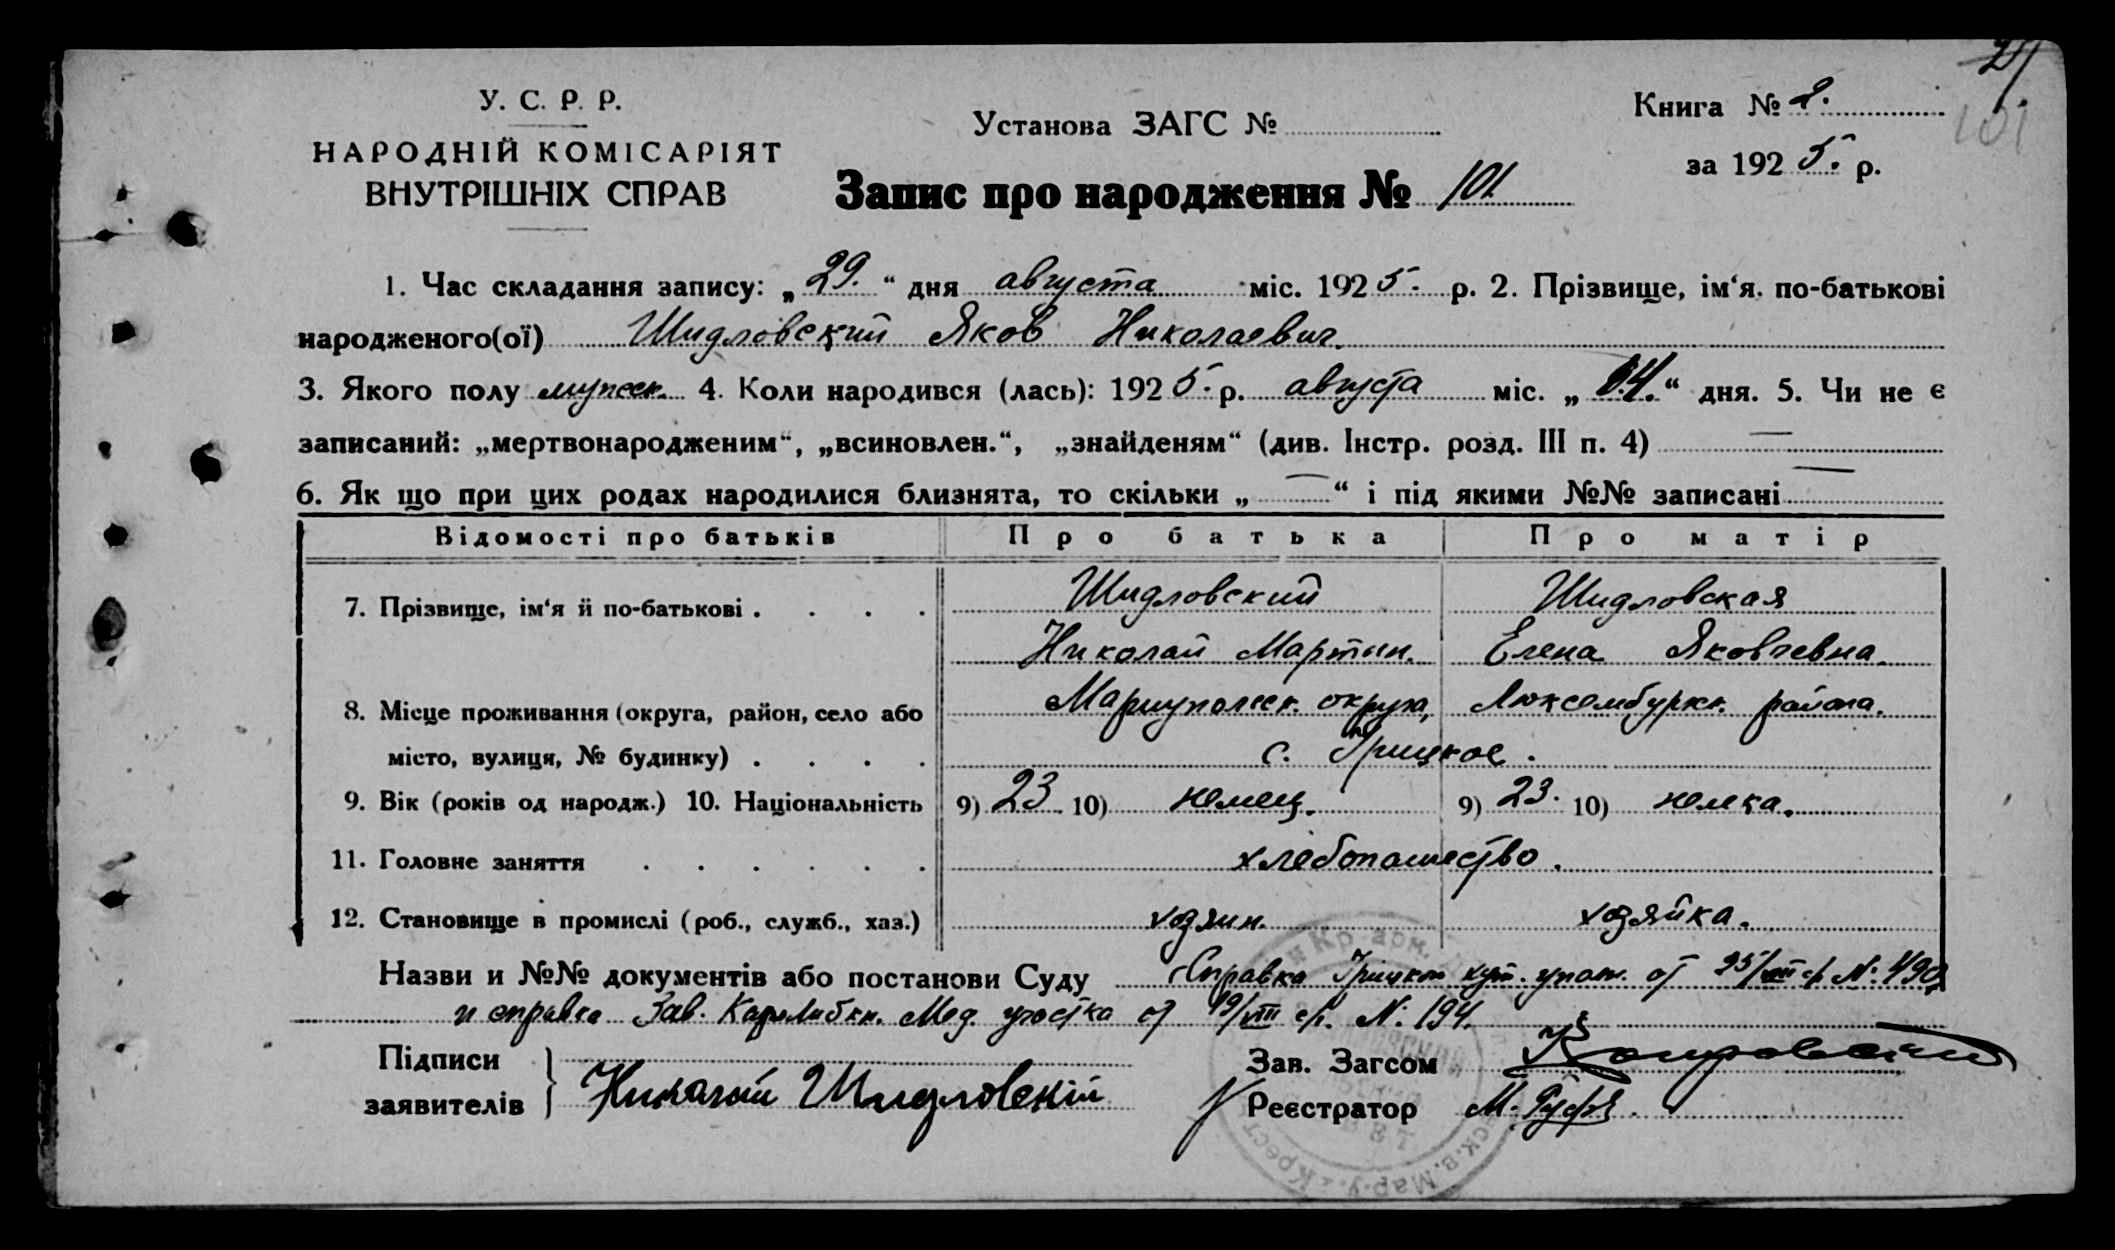 У. С. Р. Р.
НАРОДНІЙ КОМІСАРІЯТ
ВНУТРІШНІХ СПРАВ
Установа ЗАГС №
Запис про народження № 101
Книга № 2.
101
за 1925. р.
1. Час складання запису: „29.“ дня августа міс. 1925. р. 2. Прізвище, ім‘я. по-батькові
народженого(ої) Шидловский Яков Николаевич.
3. Якого полу мужск. 4. Коли народився (лась): 1925. р. августа міс. „ 14. “ дня. 5. Чи не є
записаний: „мертвонародженим“, „всиновлен.“, „знайденям“ (див. Інстр. розд. III п. 4) —
6. Як що при цих родах народилися близнята, то скільки „ — “ і під якими №№ записані —
Відомості про батьків Про батька Про матір
7. Прізвище, ім‘я й по-батькові . . . . Шидловский Шидловская
Николай Мартын. Елена Яковлевна.
8. Місце проживання (округа, район, село або Мариупольск. округа, Люксембургк. района.
місто, вулиця, № будинку) . . . . с. Грицкое.
9. Вік (років од народж.) 10. Національність 9) 23 10) немец. 9) 23. 10) немка.
11. Головне заняття . . . . . . хлебопашество.
12. Становище в промислі (роб., служб., хаз.) хозяин. хозяйка.
Назви и №№ документів або постанови Суду Справка Грицком. упот. от 25/VIII с/г № 490,
и справка Зав. Мед. участка от 19/VIII с/г. № 194.
Підписи
заявителів } Николай Шидловскій
Зав. Загсом
Реєстратор М.